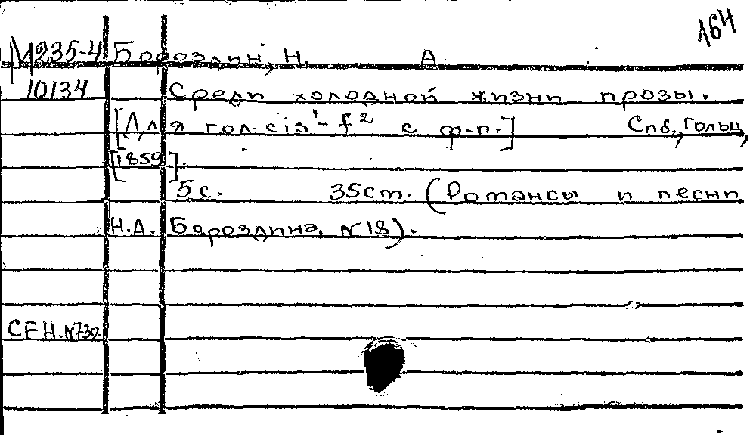 164
М935-4 Бороздин, Н. А
10134 Среди холодной жизни прозы.
[Для гол. cis¹-f² с ф-п.] Спб., Гольц,
[1859].
5с. 35cm. (Романсы и песни
Н.А. Бороздина, №18).
СЕН.№732